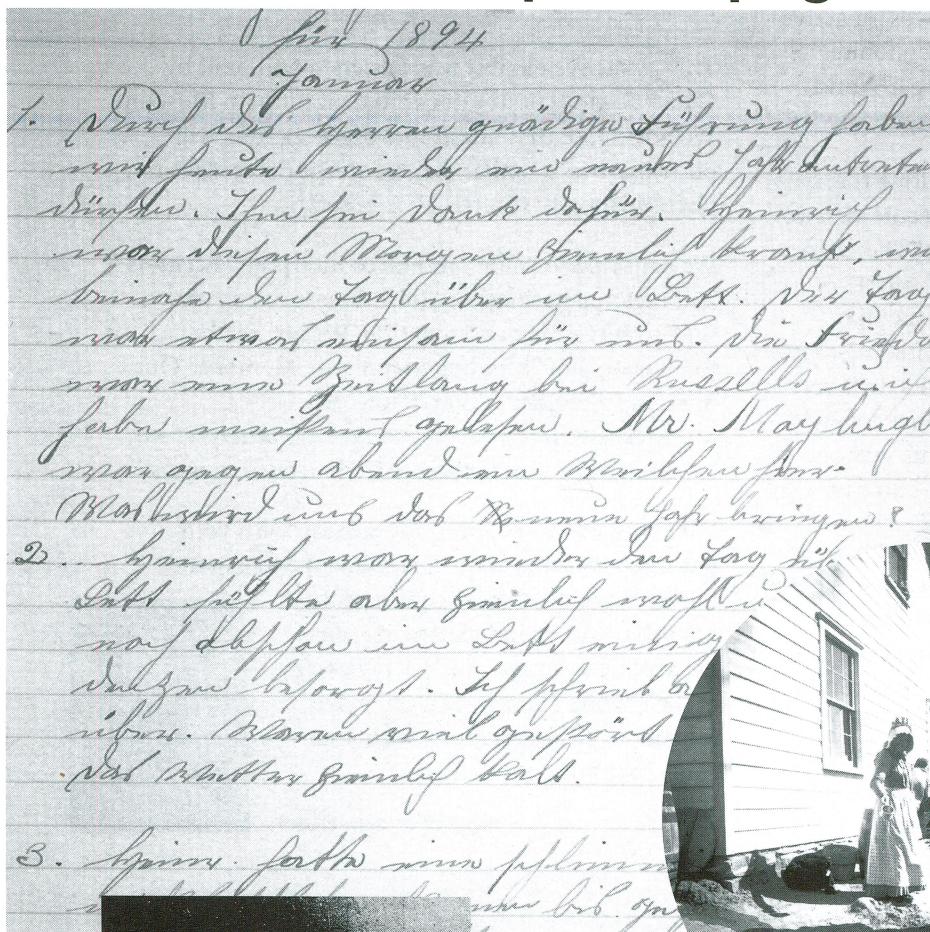 für 1894
Januar
1. Durch des Herren gnädige Führung haben
wir heute wieder ein neues Jahr antreten
dürfen. Ihm sei Dank dafür. Heinrich
war diesen Morgen ziemlich krank, war
beinahe den Tag über im Bett. Der Tag
war etwas einsam für uns. Die Frieda
war eine Zeitlang bei Russells u. ich
habe meistens gelesen. Mr.
war gegen abend ein Weilchen hier.
Was wird uns das neue Jahr bringen?
2. Heinrich war wieder den Tag üb
Bett fühlte aber ziemlich wohl u
noch obschon im Bett einig
besorgt. Ich schrieb
über. Waren viel gestört
Das Wetter ziemlich kalt.
3. Heinr. hatte eine schlimm
bis ge